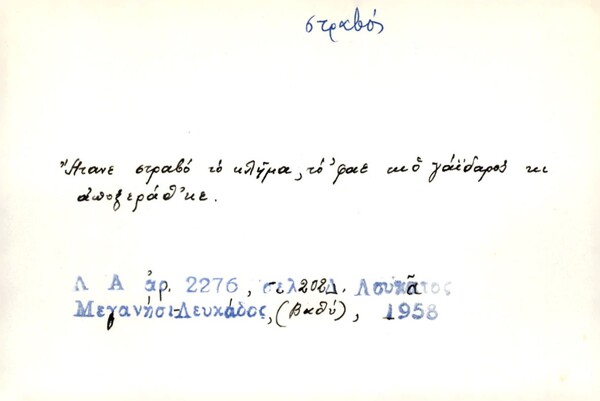 στραβός
Ἤτανε στραβό τό κλῆμα, τό 'φαε κι ὁ γάϊδαρος κι
ἀποξεράθ'κε.
Λ Α ἀρ. 2276, σελ 202 Δ. Λουκᾶτος
Μεγανήσι-Λευκάδος, (Βαθύ), 1958